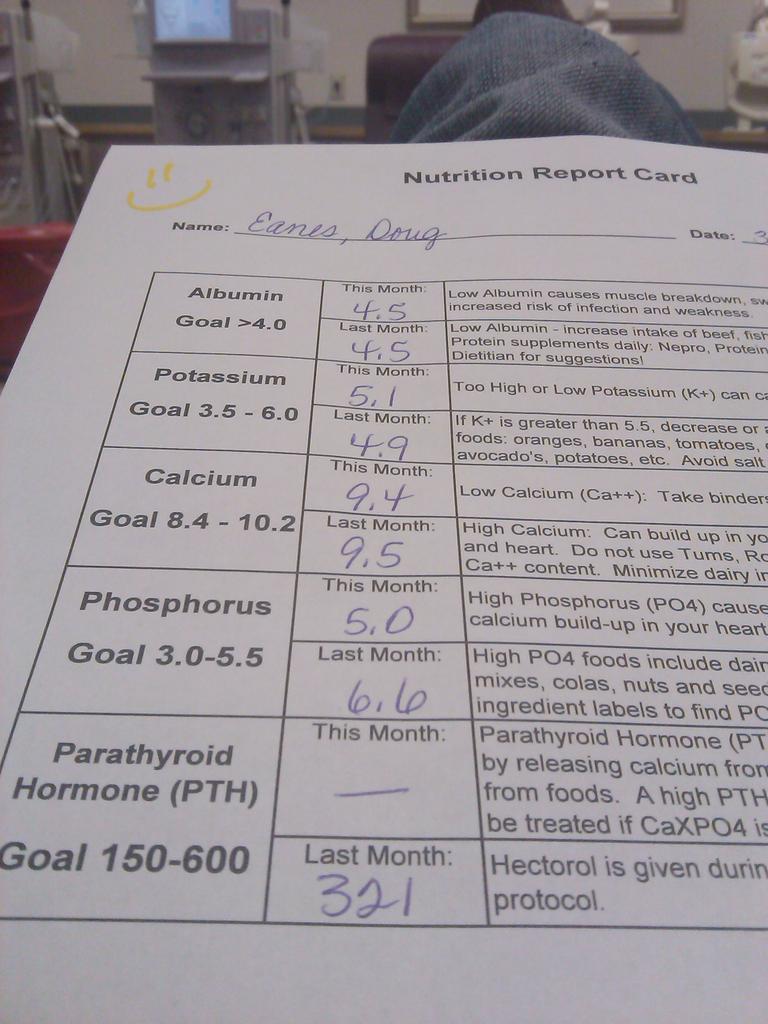 Nutrition Report Card
Name: Eanes, Doug Date: 3
Albumin
Goal >4.0
This Month:
4.5
Last Month:
4.5
Low Albumin causes muscle breakdown, sw
increased risk of infection and weakness.
Low Albumin - increase intake of beef, fish
Protein supplements daily: Nepro, Protein
Dietitian for suggestions!
Potassium
Goal 3.5 - 6.0
This Month:
5.1
Last Month:
4.9
Too High or Low Potassium (K+) can ca
If K+ is greater than 5.5, decrease or a
foods: oranges, bananas, tomatoes,
avocado's, potatoes, etc. Avoid salt
Calcium
Goal 8.4 - 10.2
This Month:
9.4
Last Month:
9.5
Low Calcium (Ca++): Take binders
High Calcium: Can build up in yo
and heart. Do not use Tums, Ro
Ca++ content. Minimize dairy in
Phosphorus
Goal 3.0-5.5
This Month:
5.0
Last Month:
6.6
High Phosphorus (PO4) cause
calcium build-up in your heart
High PO4 foods include dair
mixes, colas, nuts and seed
ingredient labels to find PO
Parathyroid
Hormone (PTH)
Goal 150-600
This Month:
—
Last Month:
321
Parathyroid Hormone (PT
by releasing calcium from
from foods. A high PTH
be treated if CaXPO4 is
Hectorol is given durin
protocol.